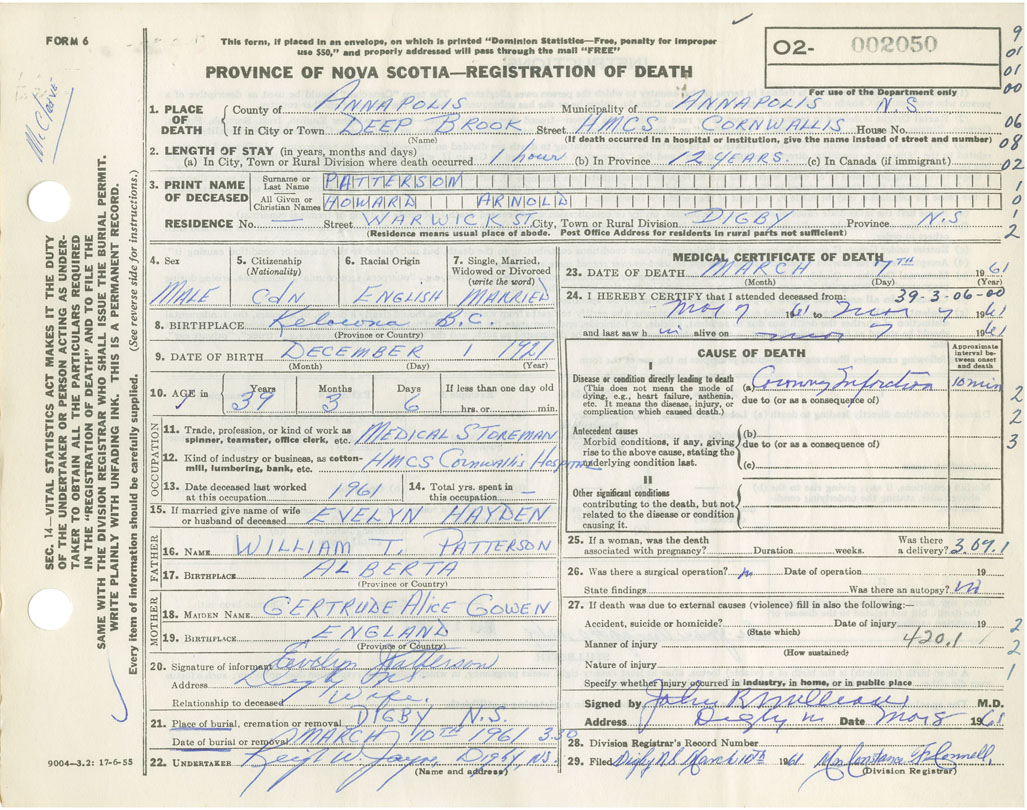 FORM 6
This form, if placed in an envelope, on which is printed "Dominion Statistics—Free, penalty for improper
use $50," and properly addressed will pass through the mail "FREE"
PROVINCE OF NOVA SCOTIA—REGISTRATION OF DEATH
02- 002050
For use of the Department only
9
01
01
00
06
08
02
1
0
1
2
SEC. 14—VITAL STATISTICS ACT MAKES IT THE DUTY
OF THE UNDERTAKER OR PERSON ACTING AS UNDER-
TAKER TO OBTAIN ALL THE PARTICULARS REQUIRED
IN THE "REGISTRATION OF DEATH" AND TO FILE THE
SAME WITH THE DIVISION REGISTRAR WHO SHALL ISSUE THE BURIAL PERMIT.
WRITE PLAINLY WITH UNFADING INK. THIS IS A PERMANENT RECORD.
Every item of information should be carefully supplied. (See reverse side for instructions.)
1. PLACE OF DEATH
County of ANNAPOLIS Municipality of ANNAPOLIS N.S
If in City or Town DEEP BROOK Street HMCS CORNWALLIS House No.
(Name) (If death occurred in a hospital or institution, give the name instead of street and number)
2. LENGTH OF STAY (in years, months and days)
(a) In City, Town or Rural Division where death occurred 1 hour (b) In Province 12 YEARS. (c) In Canada (if immigrant)
3. PRINT NAME OF DECEASED
Surname or Last Name PATTERSON
All Given or Christian Names HOWARD ARNOLD
RESIDENCE No. — Street WARWICK ST. City, Town or Rural Division DIGBY Province N.S
(Residence means usual place of abode. Post Office Address for residents in rural parts not sufficient)
4. Sex
MALE
5. Citizenship (Nationality)
CDN
6. Racial Origin
ENGLISH
7. Single, Married, Widowed or Divorced (write the word)
MARRIED
8. BIRTHPLACE Kelowna B.C.
(Province or Country)
9. DATE OF BIRTH DECEMBER 1 1921
(Month) (Day) (Year)
10. AGE in Years 39 Months 3 Days 6 If less than one day old
hrs. or min.
OCCUPATION
11. Trade, profession, or kind of work as spinner, teamster, office clerk, etc. MEDICAL STOREMAN
12. Kind of industry or business, as cotton-mill, lumbering, bank, etc. HMCS Cornwallis Hospital
13. Date deceased last worked at this occupation 1961
14. Total yrs. spent in this occupation —
15. If married give name of wife or husband of deceased EVELYN HAYDEN
FATHER
16. NAME WILLIAM T. PATTERSON
17. BIRTHPLACE ALBERTA
(Province or Country)
MOTHER
18. MAIDEN NAME GERTRUDE Alice GOWEN
19. BIRTHPLACE ENGLAND
(Province or Country)
20. Signature of informant Evelyn Patterson
Address Digby N.S.
Relationship to deceased Wife.
21. Place of burial, cremation or removal DIGBY N.S.
Date of burial or removal MARCH 10TH 1961 3.30
22. UNDERTAKER Digby, N.S.
(Name and address)
9004—3.2: 17-6-55
MEDICAL CERTIFICATE OF DEATH
23. DATE OF DEATH MARCH 7TH 1961
(Month) (Day)
24. I HEREBY CERTIFY that I attended deceased from: 39-3-06-00
Mar 7 1961 to Mar 7 1961
and last saw h im alive on Mar 7 1961
CAUSE OF DEATH
Approximate interval between onset and death
I
Disease or condition directly leading to death
(This does not mean the mode of dying, e.g., heart failure, asthenia, etc. It means the disease, injury, or complication which caused death.)
(a) Coronary Infarction 10 min
due to (or as a consequence of)
Antecedent causes
Morbid conditions, if any, giving rise to the above cause, stating the underlying condition last.
(b)
due to (or as a consequence of)
(c)
II
Other significant conditions
contributing to the death, but not related to the disease or condition causing it.
2
2
3
25. If a woman, was the death associated with pregnancy? Duration weeks. Was there a delivery? 3.09.1
26. Was there a surgical operation? Date of operation 19
State findings Was there an autopsy?
27. If death was due to external causes (violence) fill in also the following:—
Accident, suicide or homicide? Date of injury 19
(State which)
Manner of injury 420.1
(How sustained)
Nature of injury
Specify whether injury occurred in industry, in home, or in public place
2
2
1
Signed by John R M.D.
Address Digby Date Mar 8 1961
28. Division Registrar's Record Number
29. Filed Digby N.S. March 10th 1961 Mrs Constance
(Division Registrar)